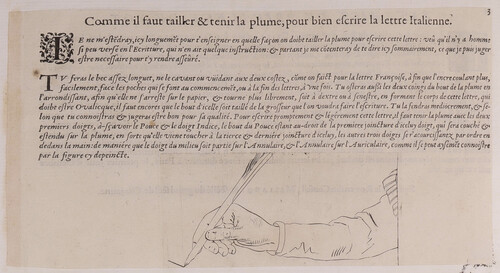 5
Comme il faut tailler & tenir la plume, pour bien escrire la lettre Italienne.
IE ne m'estẽdray, icy longuemẽt pour t'enseigner en quelle façon on doibt tailler la plume pour escrire cette lettre : veu qu'il n'y a homme
si peu versé en l'Ecriture, qui n'en ait quelque instruction : & partant je me cõtenteray de te dire icy sommairement, ce que je puis juger
estre necessaire pour t'y rendre asseuré.
TV feras le bec assez longuet, ne le cavant ou vuidant aux deux costez, cõme on faict pour la lettre Françoise, à fin que l'encre coulant plus
facilement, face les poches qui se font au commencemẽt, ou à la fin des lettres, à une fois. Tu osteras aussi les deux coings du bout de la plume en
l'arrondissant, afin qu'elle ne s'arreste sur le papier, & tourne plus librement, soit à dextre ou à senestre, en formant le corps de cette lettre, qui
doibt estre Ovalivque, il faut encore que le bout d'icelle soit taillé de la grosseur que l'on voudra faire l'escriture. Tu la fendras mediocrement, & selon
que tu cognoistras & jugeras estre bon pour sa qualité. Pour escrire promptement & legerement cette lettre, il faut tenir la plume avec les deux
premiers doigts, à-sçavoir le Pouce & le doigt Indice, le bout du Pouce estant au-droit de la premiere joincture d'iceluy doigt, qui sera couché &
estendu sur la plume, en sorte qu'elle vienne toucher à la tierce & derniere joincture d'iceluy, les autres trois doigts se r'accourciront par ordre en
dedans la main, de maniere que le doigt du milieu soit partie sur l'Annulaire, & l'Annulaire sur l'Auriculaire, comme il se peut aisémẽt cognoistre
par la figure icy depeincte.